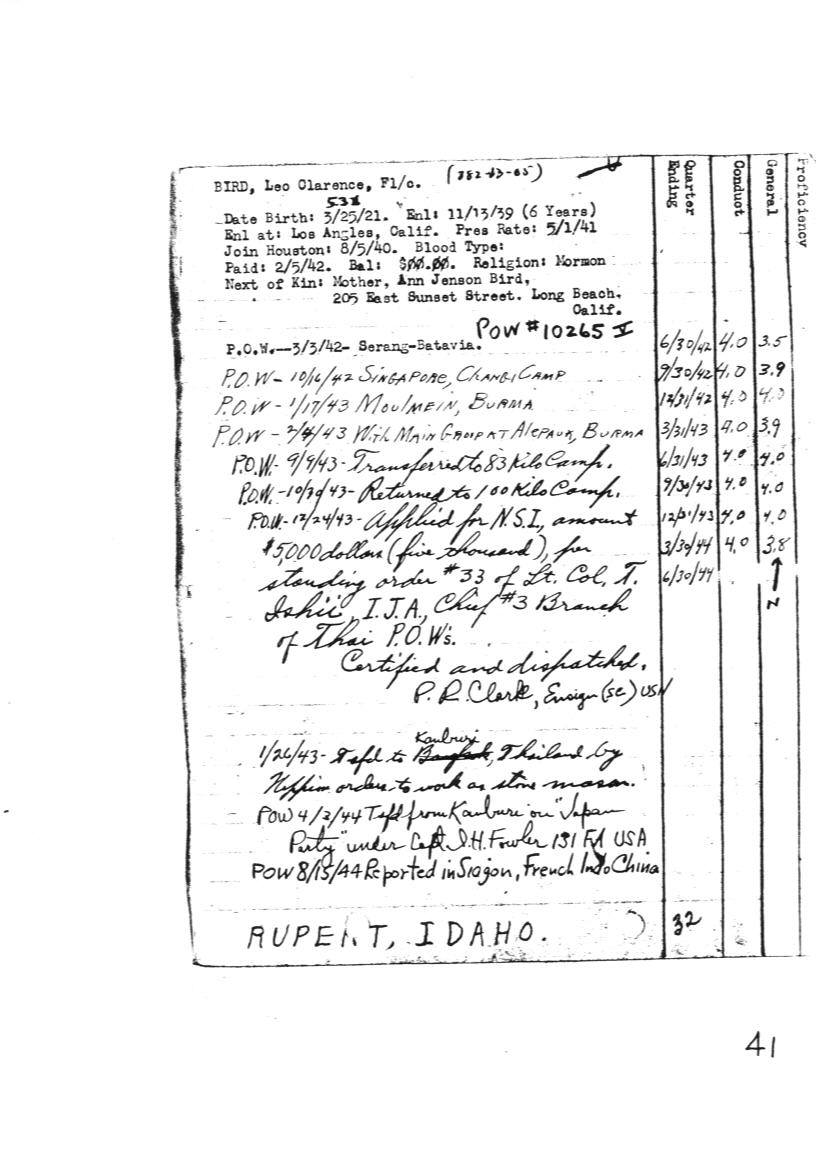 BIRD, Leo Clarence, F1/c. (382-43-05)
538
Date Birth: 3/25/21. Enl: 11/13/39 (6 Years)
Enl at: Los Angles, Calif. Pres Rate: 5/1/41
Join Houston: 8/5/40. Blood Type:
Paid: 2/5/42. Bal: $00.00. Religion: Mormon
Next of Kin: Mother, Ann Jenson Bird,
205 East Sunset Street. Long Beach,
Calif.
POW #10265 V
P.O.W.--3/3/42- Serang-Batavia.
P.O.W- 10/16/42 SINGAPORE, CHANGI CAMP
P.O.W- 1/17/43 MOULMEIN, BURMA
P.O.W- 2/4/43 With MAIN GROUP AT Alepauk, BURMA
P.O.W- 9/9/43- Transferred to 83 Kilo Camp.
P.O.W.-10/30/43- Returned to 100 Kilo Camp.
P.O.W.-12/24/43- Applied for N.S.I., amount
$5,000 dollars (five thousand), per
standing order #33 of Lt. Col. T.
Ishii, I.J.A., Chief #3 Branch
of Thai P.O.W's.
Certified and dispatched.
P.R. Clark, Ensign (SC) USN
Kanburi
1/26/43- Tsfd to Bangkok, Thailand by
Nippon orders to work as stone mason.
POW 4/2/44 Tsfd from Kanburi on "Japan
Party" under Capt. I.H. Fowler 131 FA USA
POW 8/15/44 Reported in Siagon, French Indo China
RUPERT, IDAHO.
Quarter Ending Conduct General Proficiency
6/30/42 4.0 3.5
9/30/42 4.0 3.9
12/31/42 4.0 4.0
3/31/43 4.0 3.9
6/31/43 4.0 4.0
9/30/43 4.0 4.0
12/31/43 4.0 4.0
3/30/44 4.0 3.8
6/30/44
N
32
41